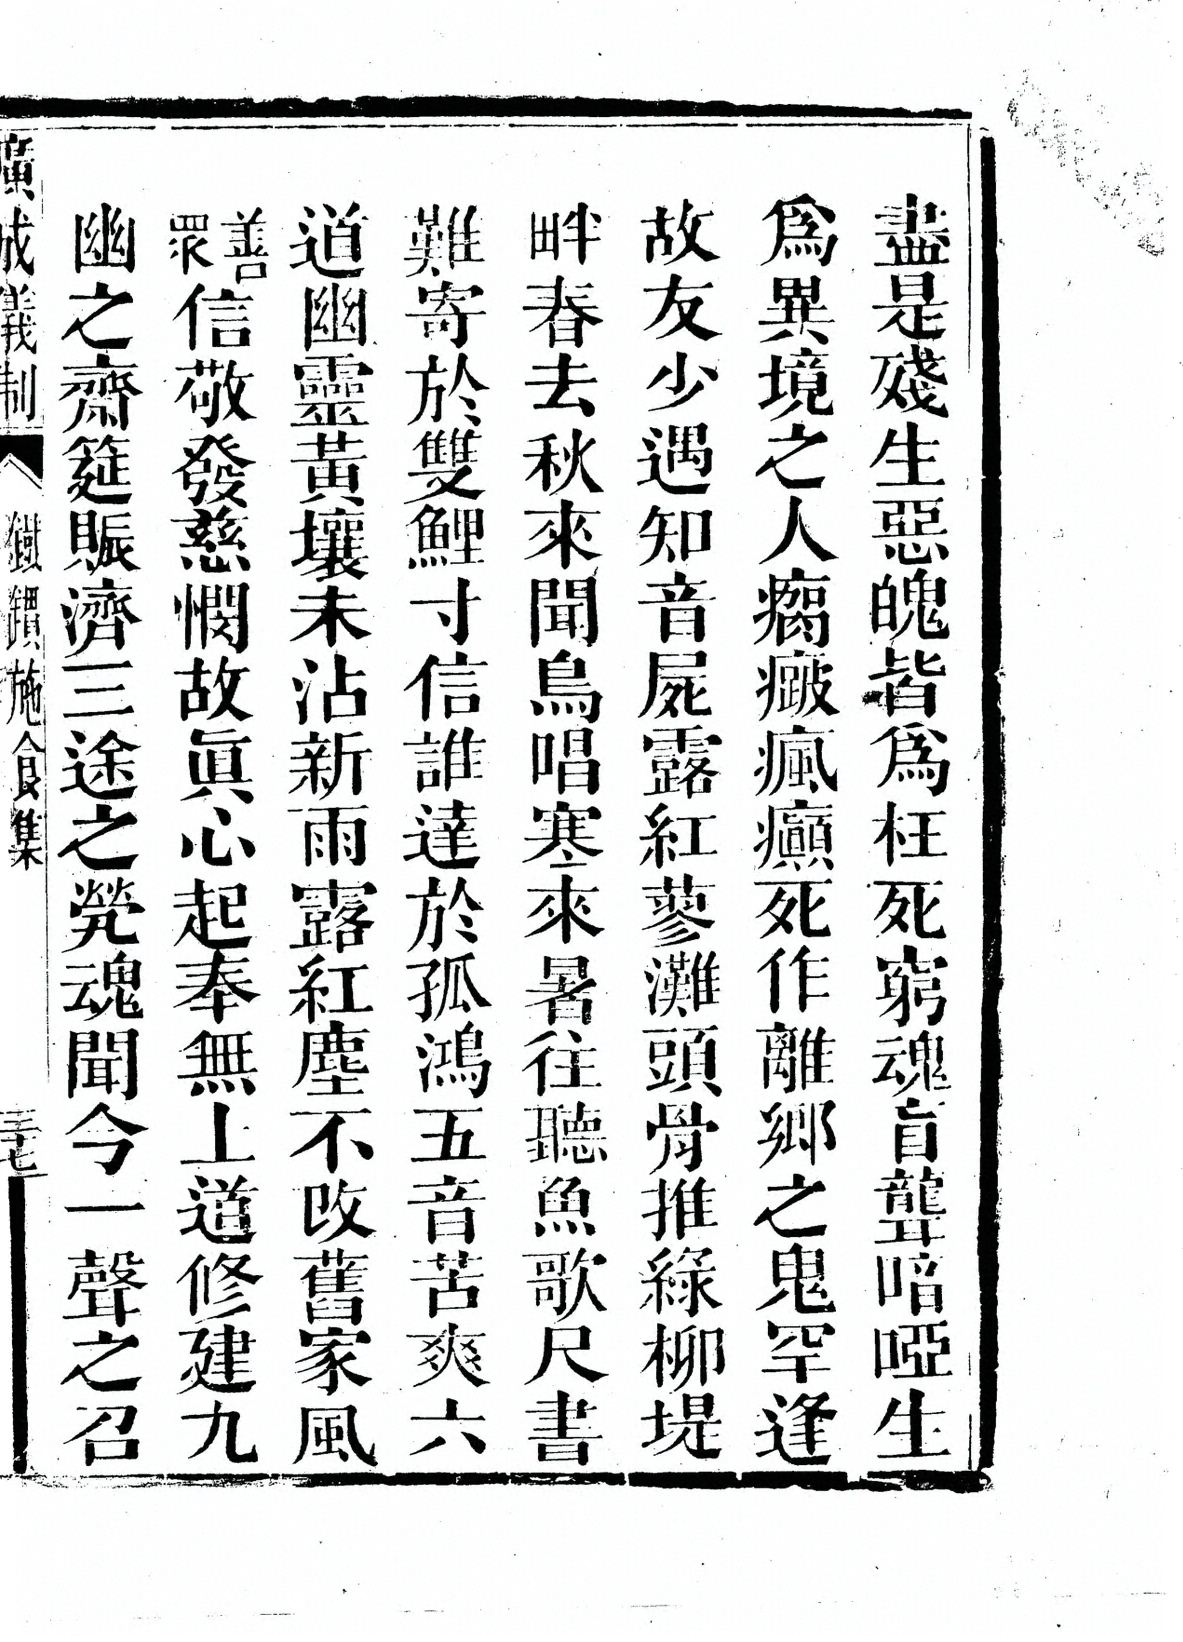 盡是殘生惡魄皆爲枉死窮魂盲聾喑啞生
爲異境之人瘸癜瘋癲死作離鄉之鬼罕逢
故友少遇知音屍露紅蓼灘頭骨推綠柳堤
畔春去秋來聞鳥唱寒來暑往聽魚歌尺書
難寄於雙鯉寸信誰達於孤鴻五音苦爽六
道幽靈黃壤未沾新雨露紅塵不改舊家風
善眾信敬發慈憫故眞心起奉無上道修建九
幽之齋筵賑濟三途之煢魂聞今一聲之召
廣成儀制 鐵鑽施食集 三十七